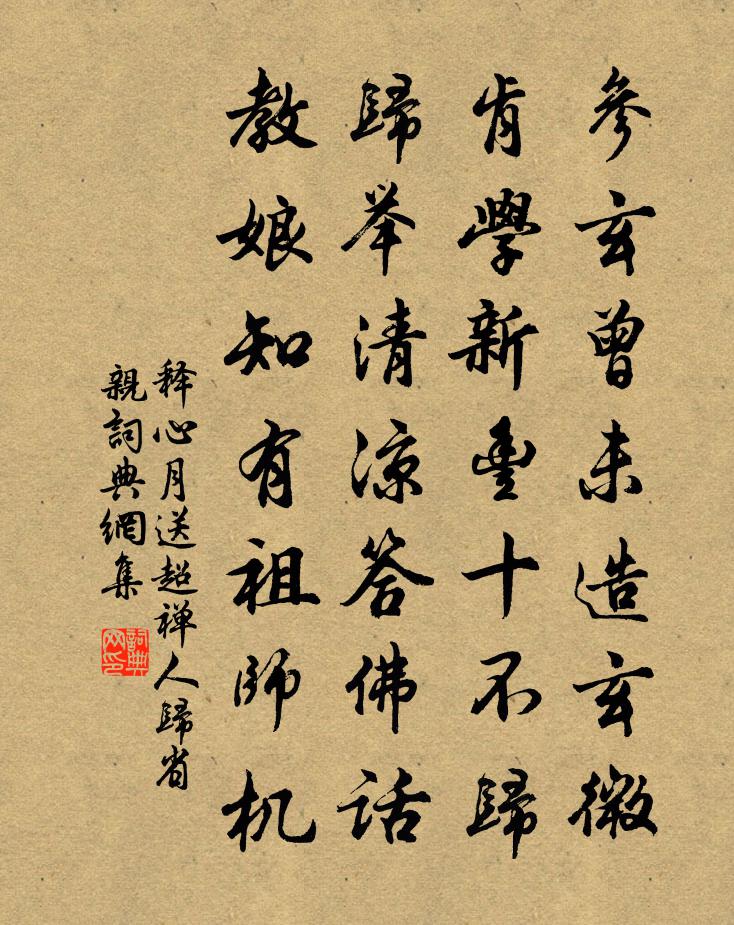 參玄曾未造玄微
肯學新豐十不歸
歸举清凉答佛話
教娘知有祖師机
释心月送超禅人歸省
親詞典網集
詞典网印